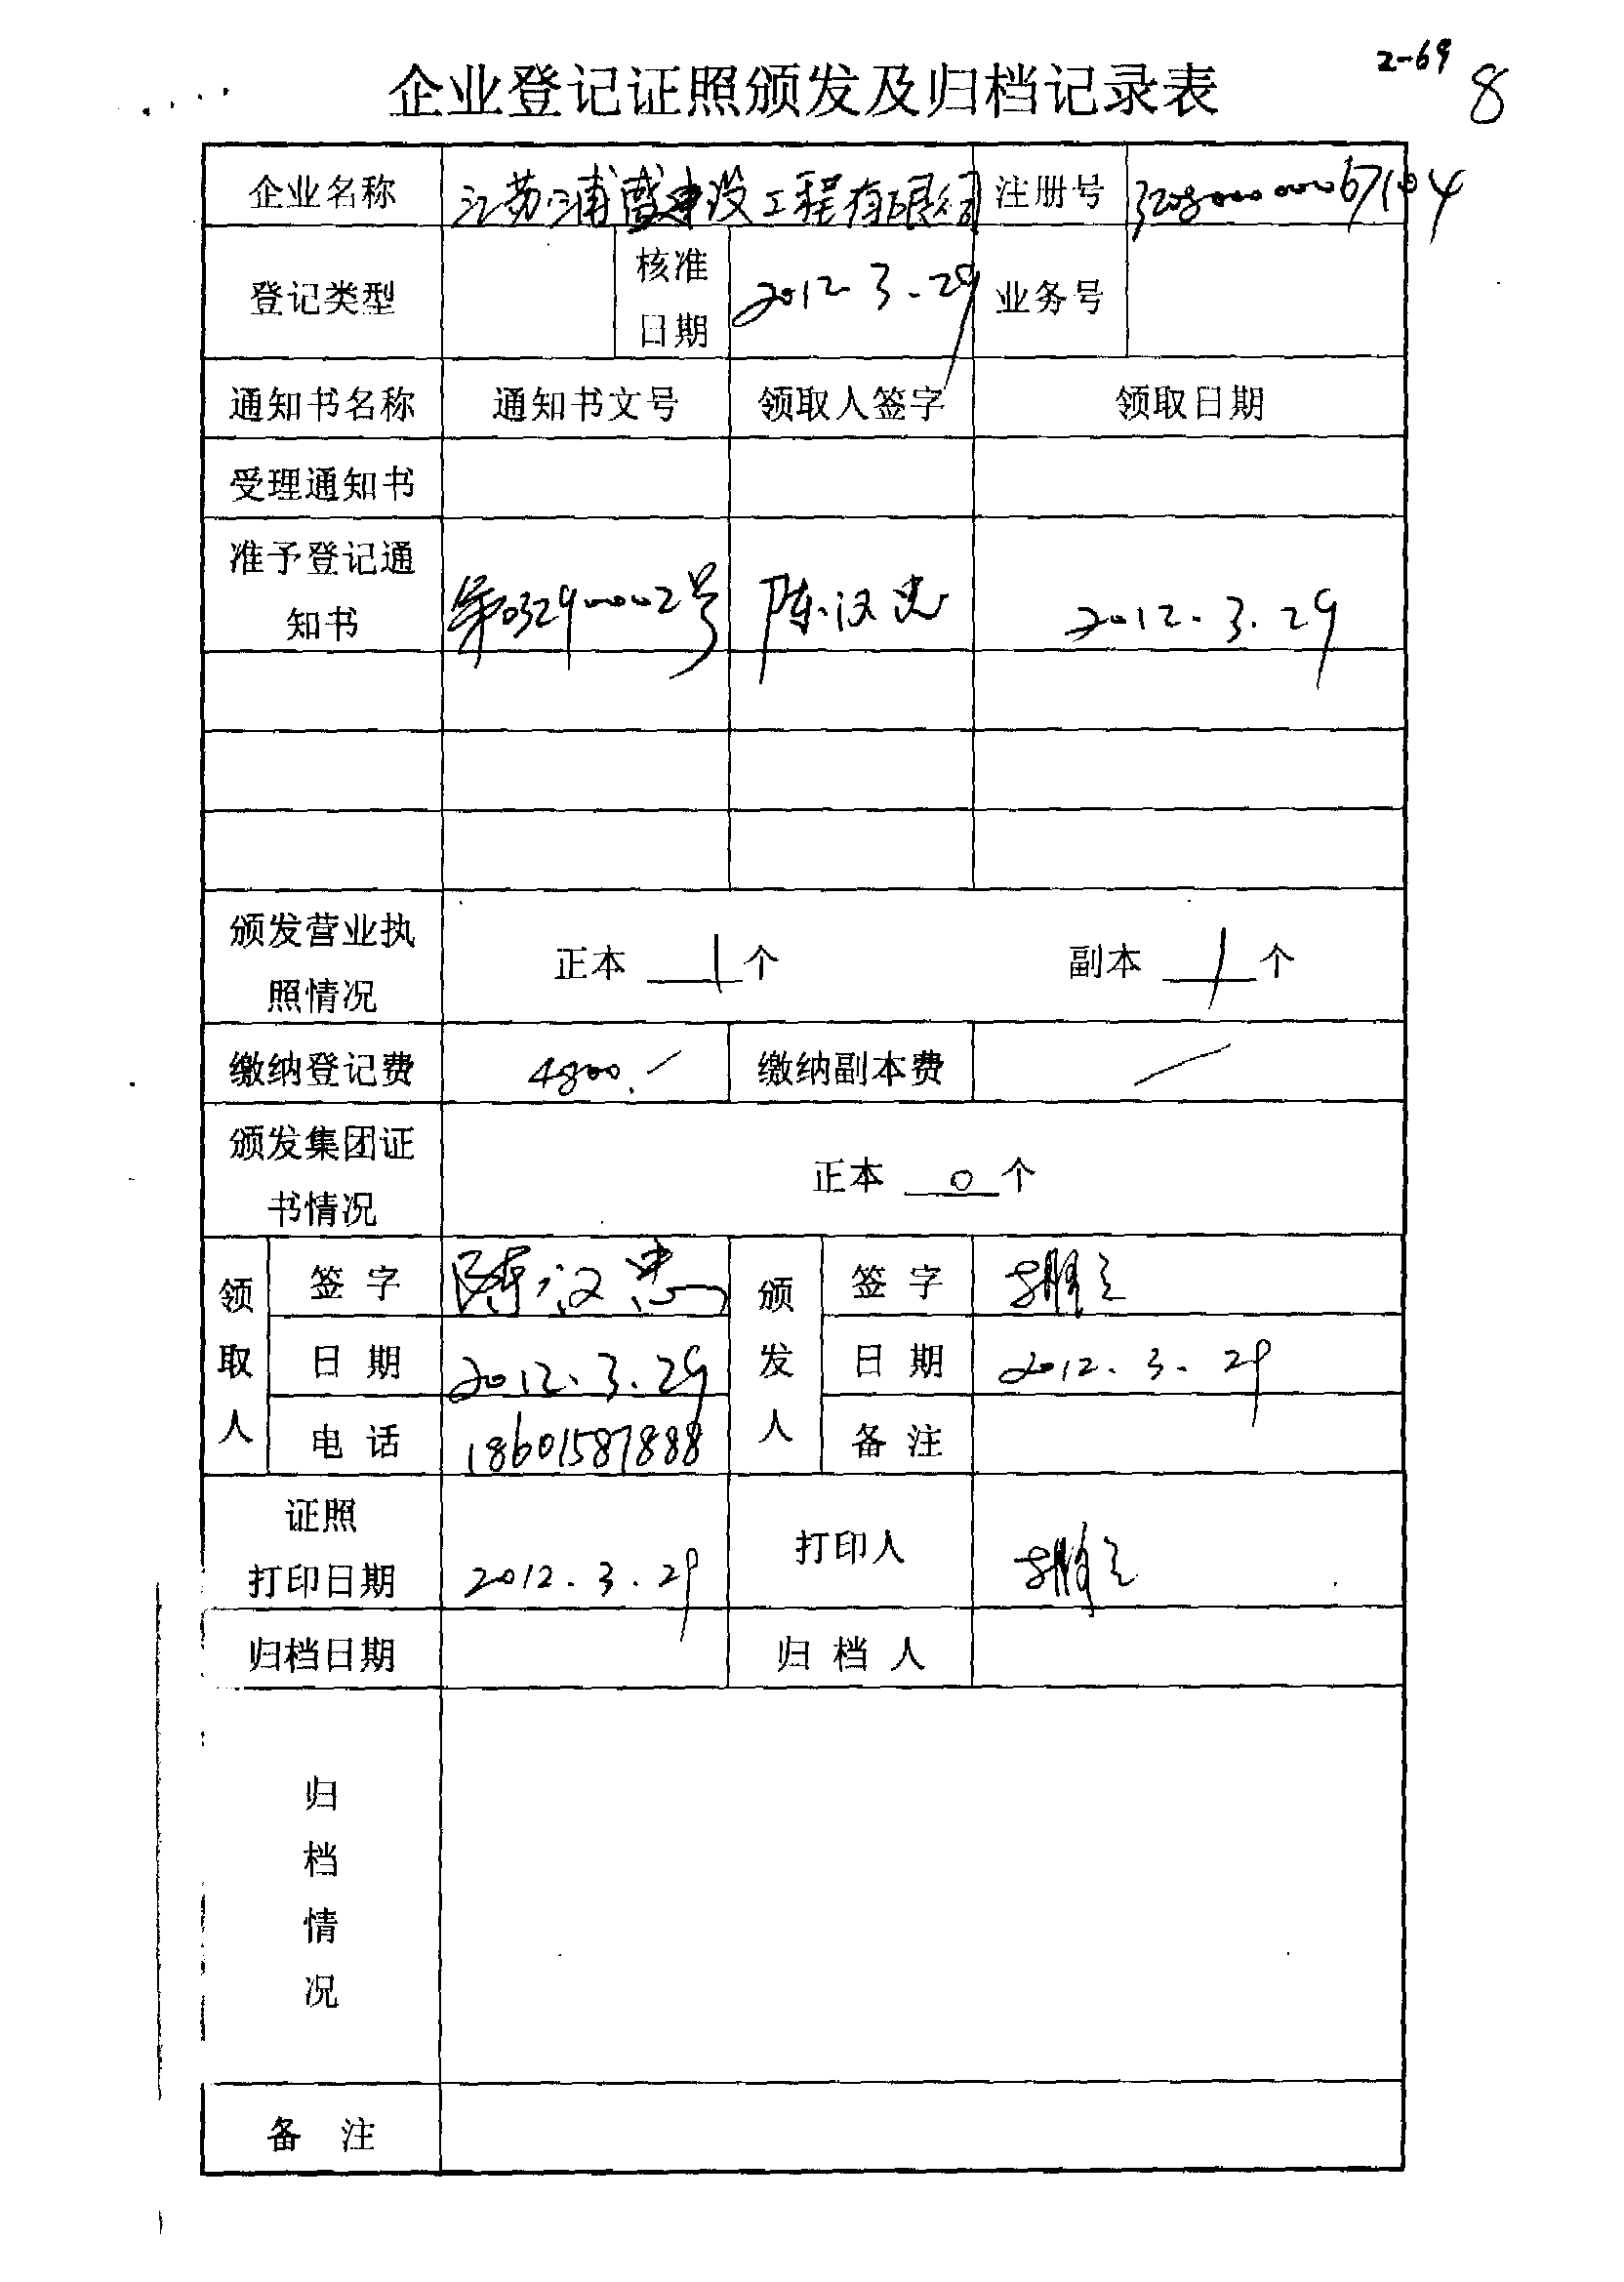 2-69
8
企业登记证照颁发及归档记录表
企业名称 江苏浦 建设工程有限公司 注册号
登记类型 核准日期 2012 3.29 业务号
通知书名称 通知书文号 领取人签字 领取日期
受理通知书
准予登记通知书 第03290002号 陈汉忠 2012.3.29
颁发营业执照情况 正本 1 个 副本 1 个
缴纳登记费 4800.- 缴纳副本费 /
颁发集团证书情况 正本 0 个
领取人 签字 陈汉忠 颁发人 签字
日期 2012.3.29 日期 2012.3.29
电话 18601587888 备注
证照打印日期 2012.3.29 打印人
归档日期 归档人
归档情况
备注